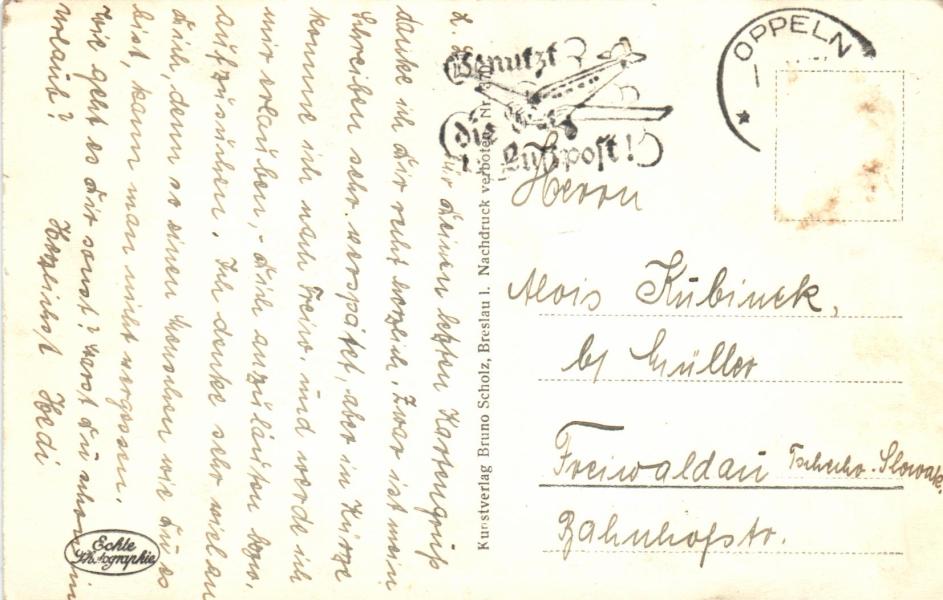 für Deinen letzten Kartengruß
danke ich Dir recht herzlich. Zwar ist mein
Schreiben sehr verspätet, aber in Kürze
komme ich nach Freiw. und werde ich
mir erlauben, - Dich anzuläuten bzw.
aufzusuchen. Ich denke sehr viel an
Dich, denn so einen Menschen wie Du es
bist, kann man nicht vergessen.
Wie geht es Dir sonst? Warst Du schon in
Urlaub? Herzlichst Hedi
Echte
Photographie
Kunstverlag Bruno Scholz, Breslau 1. Nachdruck verboten. Nr.
Benutzt
die
Luftpost!
OPPELN
Herrn
Alois Kubinek,
b/ Müller
Freiwaldau Tschecho-Slowak.
Bahnhofstr.